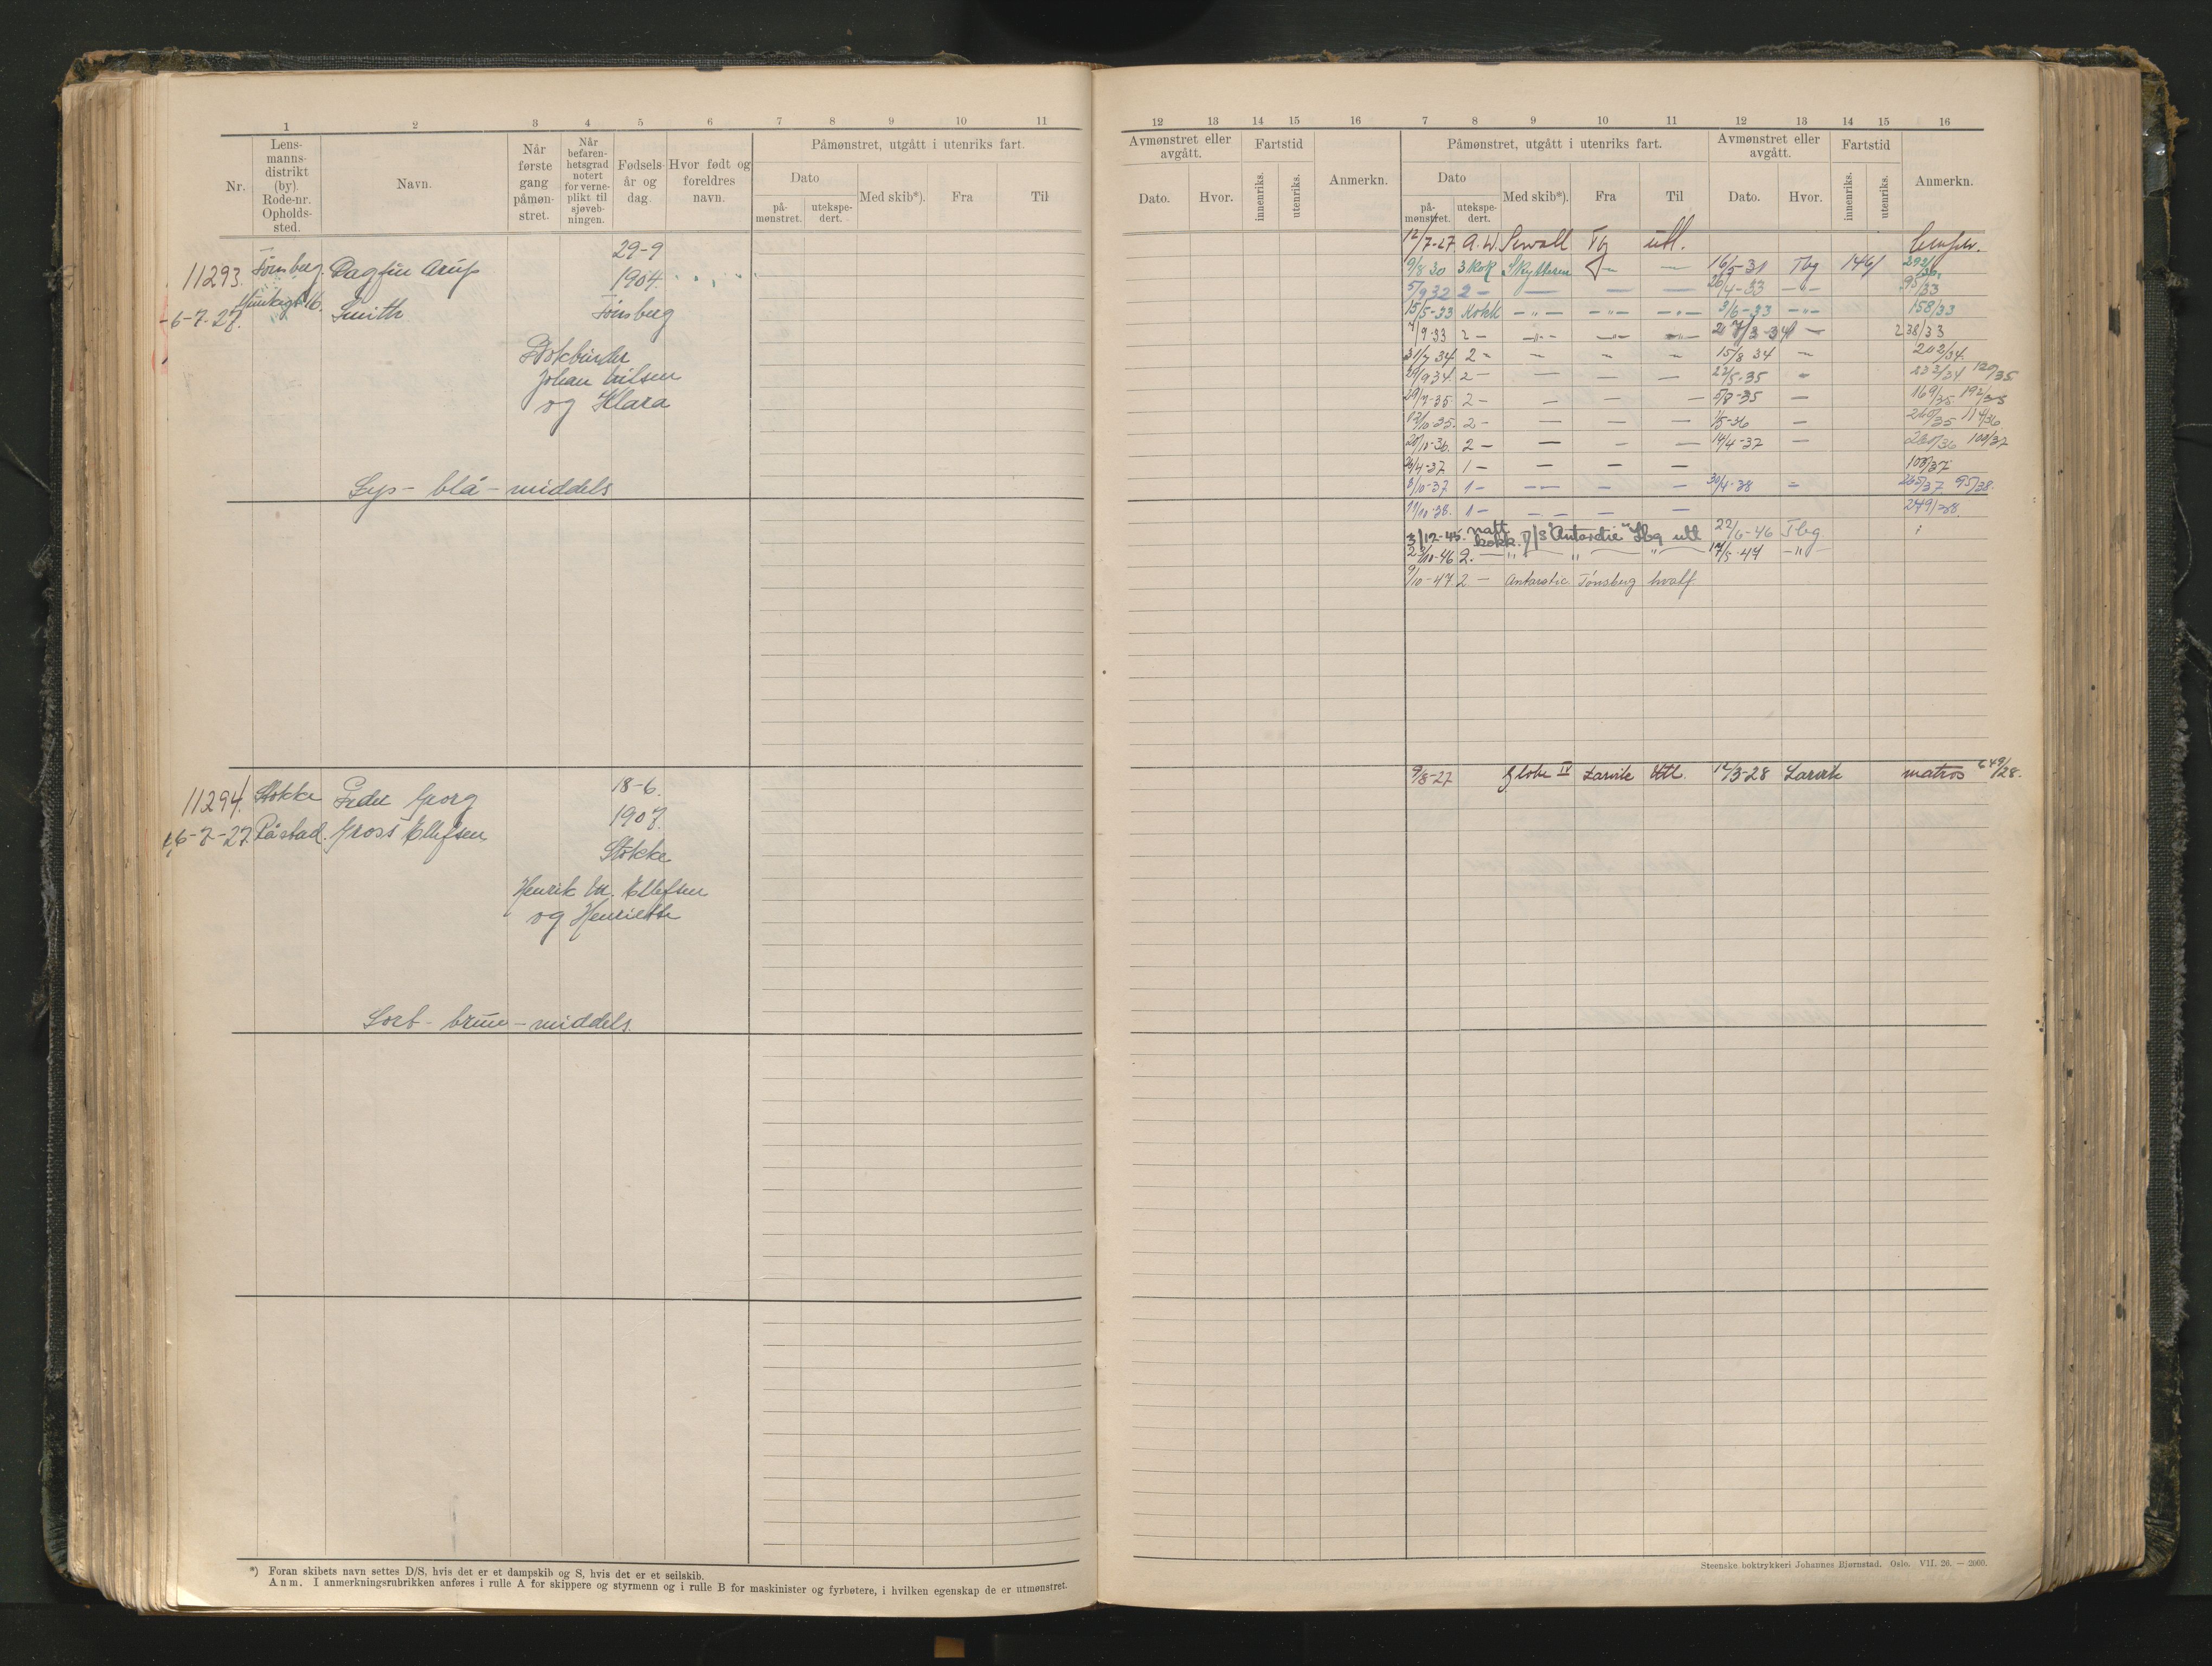 1 2 3 4 5 6 7 8 9 10 11
Nr. Lensmannsdistrikt (by). Rode-nr. Opholdssted. Navn. Når første gang påmønstret. Når befarenhetsgrad notert for verneplikt til sjøvebningen. Fødselsår og dag. Hvor født og foreldres navn. Påmønstret, utgått i utenriks fart.
Dato
påmønstret. utekspedert. Med skib*). Fra Til
29-9
11293. Tønsberg. Dagfin Arup 1904.
-6-7-27. 16. Smith Tønsberg
Bokbinder
Johan Nilsen
og Klara
Lys - blå - middels
18-6.
11294. Stokke Peder Georg 1907.
6-7-27. Råstad. Gross Ellefsen
Stokke
Henrik M. Ellefsen
og Henriette
Sort - brun - middels.
*) Foran skibets navn settes D/S, hvis det er et dampskib og S, hvis det er et seilskib.
Anm. I anmerkningsrubrikken anføres i rulle A for skippere og styrmenn og i rulle B for maskinister og fyrbøtere, i hvilken egenskap de er utmønstret.
12 13 14 15 16 7 8 9 10 11 12 13 14 15 16
Avmønstret eller avgått. Fartstid Anmerkn. Påmønstret, utgått i utenriks fart. Avmønstret eller avgått. Fartstid Anmerkn.
Dato. Hvor. innenriks. utenriks. Dato påmønstret. utekspedert. Med skib*). Fra Til Dato. Hvor. innenriks. utenriks.
12/7-27 A. W. Sewall Tg utl.
9/8 30 3 kok Skytteren — — 16/5-31 Tbg 146/ 292/30.
5/9 32 2 — — — — 26/4-33 -"- 95/33
15/5-33 Kokk -"- -"- -"- 3/6-33 -"- 158/33
7/9 33 2 - -"- -"- -"- 7/3-34 — 238/33
31/7 34 2 - — — — 15/8 34 — 202/34.
29/9 34. 2 - — — — 22/5-35 - 233/34 120/35
29/7-35. 2 - — — — 5/8-35 — 169/35 192/35
12/10-35. 2 - — — — 1/5-36 — 260/35 114/36
20/10-36. 2 — — — — 14/4-37 — 280/36 100/37
26/4-37 1 — — — — 103/37
8/10-37 1 — — — — 30/4-38 — 265/37 95/38.
11/10-38. 1 — — — — 249/38.
3/12-45. natt kokk. D/S "Antarctic" Tbg utl 22/6-46 Tbg
23/10-46 2. — " " " 17/5-47 -"-
9/10-47 2 — Antarctic. Tønsberg hvalf.
9/8-27 Globe IV Larvik Utl. 12/3-28 Larvik matros 649/28.
Steenske boktrykkeri Johannes Bjørnstad. Oslo. VII. 26. — 2000.